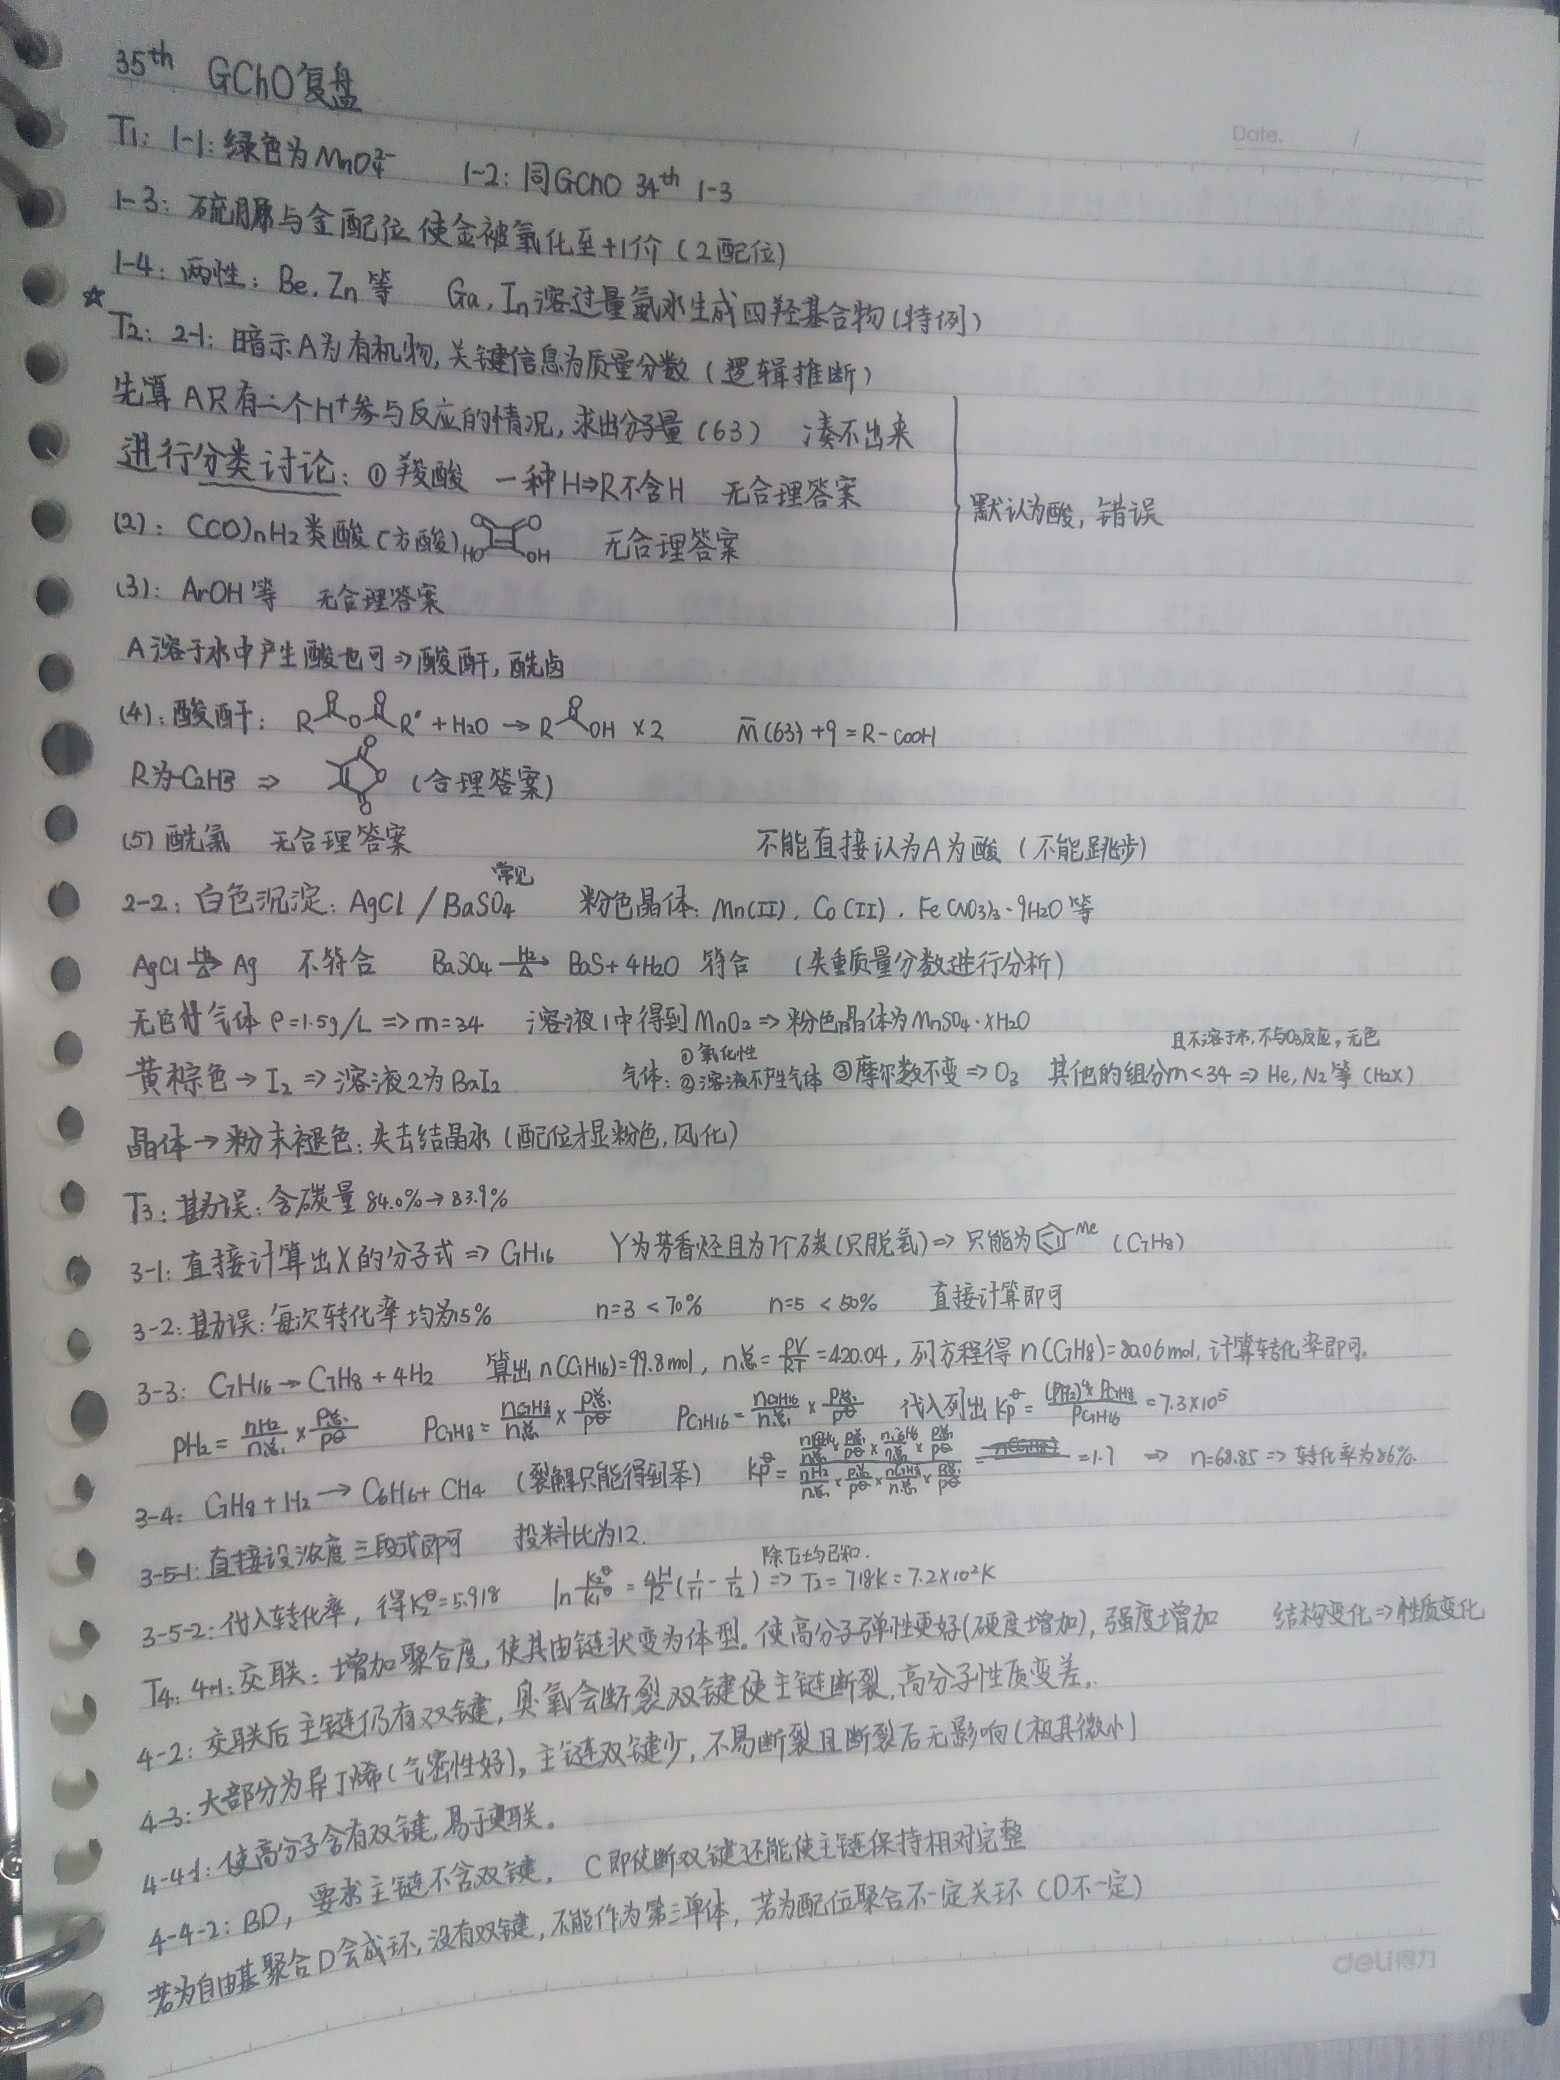 35th GChO复盘
Date. /
T1: 1-1: 绿色为MnO₄²⁻ 1-2: 同GChO 34th 1-3
1-3: 硫脲与金配位使金被氧化至+1价(2配位)
1-4: 两性: Be, Zn等 Ga, In溶过量氨水生成四羟基合物(特例)
☆ T2: 2-1: 暗示A为有机物, 关键信息为质量分数(逻辑推断)
先算A只有一个H⁺参与反应的情况, 求出分子量(63) 凑不出来
进行分类讨论: ① 羧酸 一种H⇒R不含H 无合理答案
默认为酸, 错误
(2): (CO)nH2类酸(方酸) HO OH 无合理答案
(3): ArOH等 无合理答案
A溶于水中产生酸也可⇒酸酐, 酰卤
(4): 酸酐: R O R' + H2O → R OH ×2 m̄(63)+9=R-COOH
R为-C2H3 ⇒ (合理答案)
(5) 酰氯 无合理答案 不能直接认为A为酸(不能跳步)
2-2: 白色沉淀: AgCl/BaSO4 常见 粉色晶体: Mn(II), Co(II), Fe(NO3)3·9H2O等
AgCl H2→△ Ag 不符合 BaSO4 H2→△ BaS+4H2O 符合 (失重质量分数进行分析)
无色气体 ρ=1.5g/L ⇒ m=34 溶液1中得到MnO2⇒粉色晶体为MnSO4·xH2O
黄棕色→I2⇒溶液2为BaI2 气体: ①氧化性 ②溶液不产生气体 ③摩尔数不变⇒O3 其他的组分m<34⇒He, N2等(H2X) 且不溶于水, 不与O3反应, 无色
晶体→粉末褪色: 失去结晶水(配位才显粉色, 风化)
T3: 勘误: 含碳量84.0%→83.9%
3-1: 直接计算出X的分子式⇒C7H16 Y为芳香烃且为7个碳(只脱氢)⇒只能为 Me (C7H8)
3-2: 勘误: 每次转化率均为15% n=3<70% n=5<50% 直接计算即可
3-3: C7H16→C7H8+4H2 算出n(C7H16)=99.8mol, n总=PV/RT=420.04, 列方程得n(C7H8)=80.06mol, 计算转化率即可.
pH2=nH2/n总×p总/pθ pC7H8=nC7H8/n总×p总/pθ pC7H16=nC7H16/n总×p总/pθ 代入列出Kpθ=(pH2)⁴×pC7H8/pC7H16=7.3×10⁵
3-4: C7H8+H2→C6H6+CH4 (裂解只能得到苯) Kpθ= =1.7 ⇒ n=68.85⇒转化率为86%.
3-5-1: 直接设浓度三段式即可 投料比为12.
3-5-2: 代入转化率, 得K2θ=5.918 ln K2θ/K1θ=ΔH/R(1/T1-1/T2)⇒T2=718K=7.2×10²K 除T2均已知.
T4: 4-1: 交联: 增加聚合度, 使其由链状变为体型。使高分子弹性更好(硬度增加), 强度增加 结构变化⇒性质变化
4-2: 交联后主链仍有双键, 臭氧会断裂双键使主链断裂, 高分子性质变差。
4-3: 大部分为异丁烯(气密性好), 主链双键少, 不易断裂且断裂后无影响(极其微小)
4-4-1: 使高分子含有双键, 易于交联。
4-4-2: BD, 要求主链不含双键, C即使断双键还能使主链保持相对完整
若为自由基聚合D会成环, 没有双键, 不能作为第三单体, 若为配位聚合不一定关环(D不一定)
deli得力